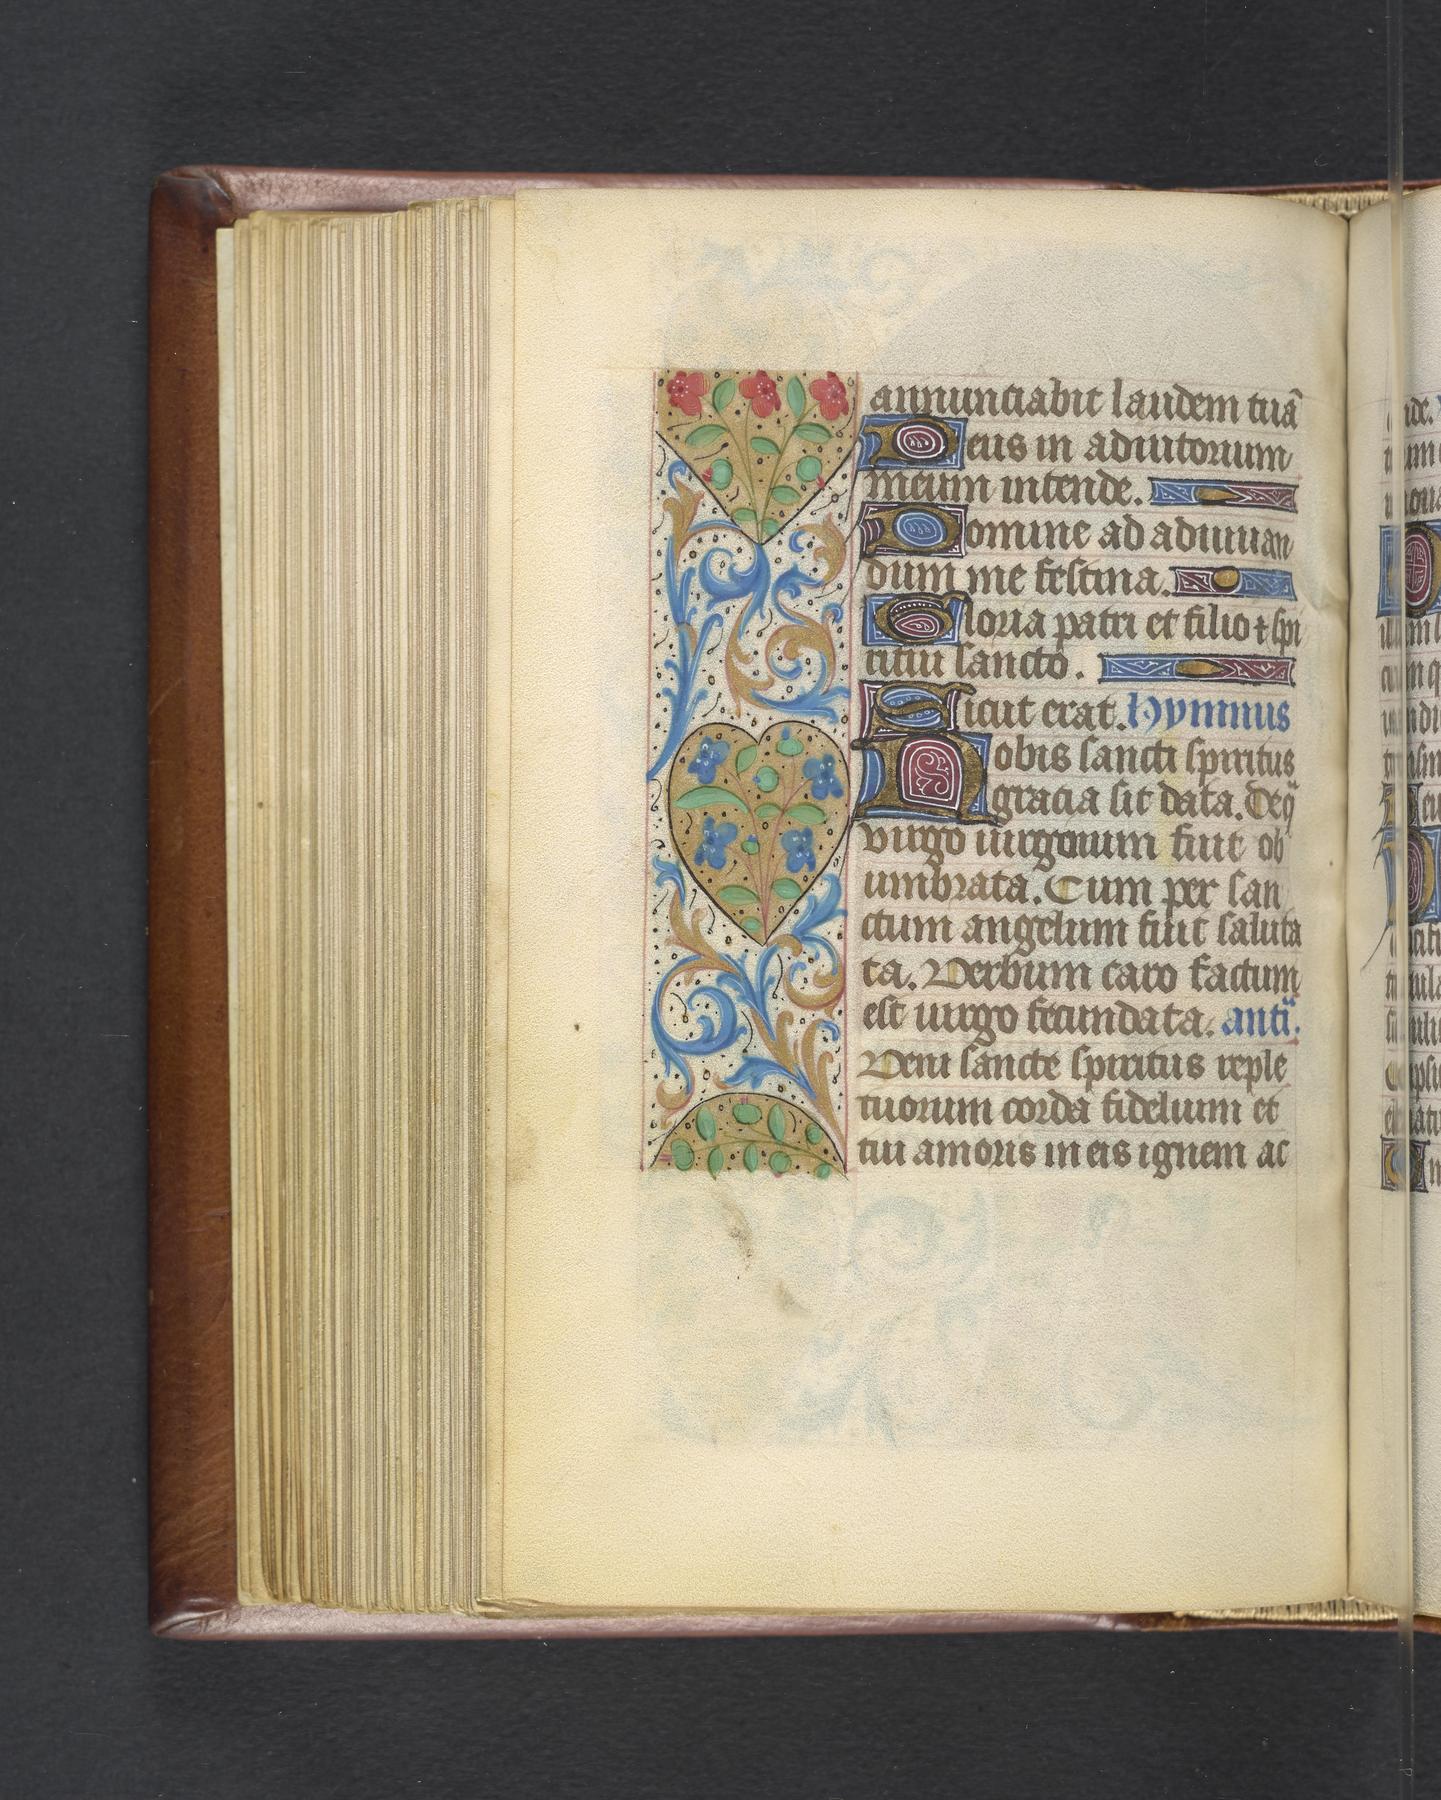 annunciabit laudem tuã
Deus in adiutorium
meum intende.
Domine ad adiuuan
dum me festina.
Gloria patri et filio ⁊ spi
ritui sancto.
Sicut erat. Hymnus
Nobis sancti spiritus
gracia sit data. De q̃
virgo uirginum fuit ob
umbrata. Cum per san
ctum angelum fuit saluta
ta. Verbum caro factum
est uirgo fecundata. antiᵃ.
Veni sancte spiritus reple
tuorum corda fidelium et
tui amoris in eis ignem ac